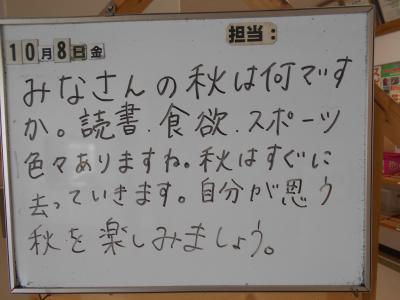 10月8日金
担当:
みなさんの秋は何です
か。読書.食欲.スポーツ
色々ありますね。秋はすぐに
去っていきます。自分が思う
秋を楽しみましょう。